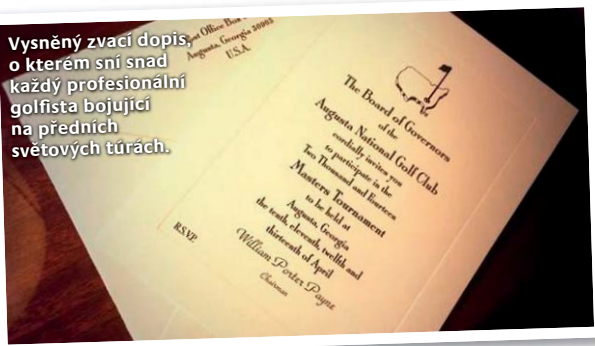 Vysněný zvací dopis,
o kterém sní snad
každý profesionální
golfista bojující
na předních
světových túrách.
Post Office Box
Augusta, Georgia 30903
U.S.A.
The Board of Governors
of the
Augusta National Golf Club
cordially invites you
to participate in the
Two Thousand and Fourteen
Masters Tournament
to be held at
Augusta, Georgia
the tenth, eleventh, twelfth and
thirteenth of April
William Porter Payne
Chairman
R.S.V.P.